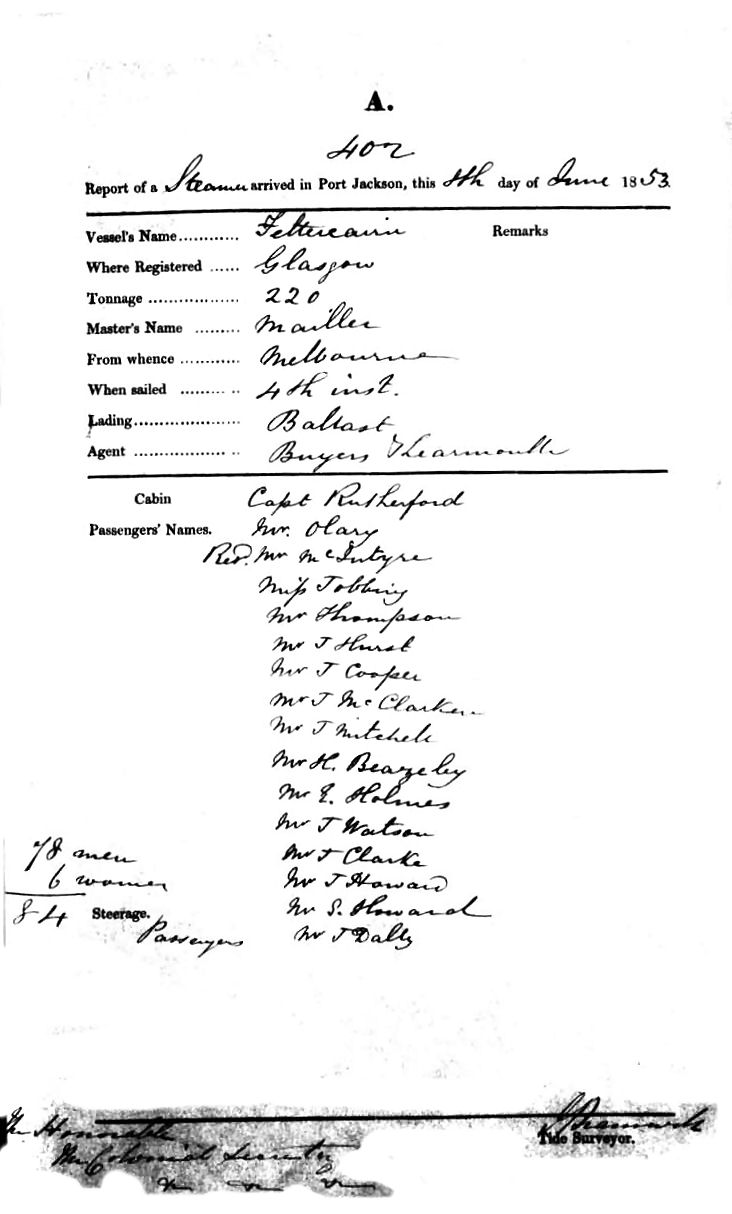 A.
402
Report of a Steamer arrived in Port Jackson, this 8th day of June 1853.
Vessel's Name............ Fettercairn Remarks
Where Registered ...... Glasgow
Tonnage .................. 220
Master's Name ......... Mailler
From whence ............ Melbourne
When sailed ......... .. 4th inst.
Lading..................... Ballast
Agent .................. .. Buyers & Learmonth
Cabin Capt Rutherford
Passengers' Names. Mr. Olary
Revd. Mr McIntyre
Miss Tobbing
Mr Thompson
Mr J Hurst
Mr J Cooper
Mr J McClarken
Mr J Mitchell
Mr H. Beazeley
Mr E. Holmes
Mr J Watson
78 men Mr J Clarke
6 women Mr J Howard
84 Steerage. Mr S. Howard
Passengers Mr J Dally
The Honorable
The Colonial Secretary
Tide Surveyor.